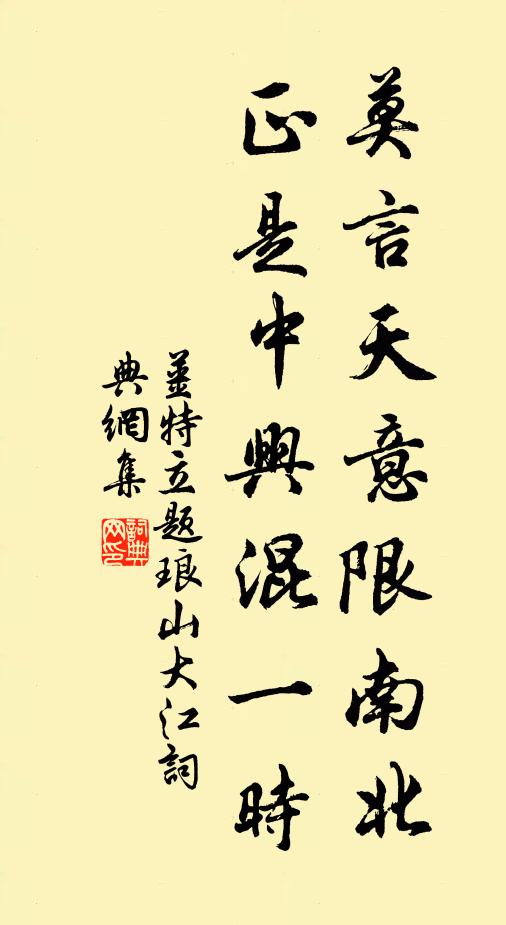 莫言天意限南北
正是中興混一時
姜特立題琅山大江詞
典網集
詞典网印